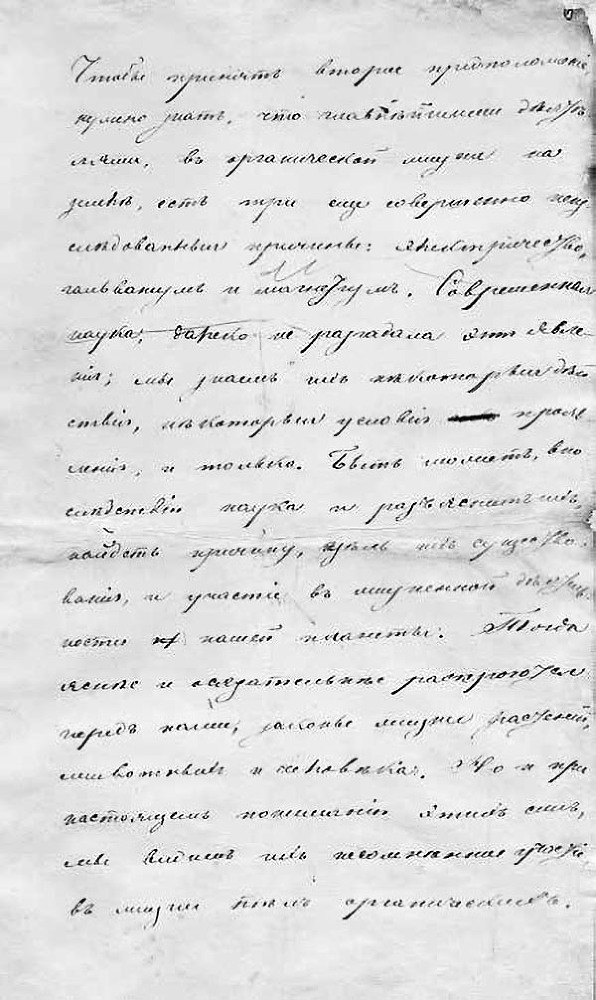 Чтобы принять второе предположеніе,
нужно знать, что главнѣйшими дѣяте-
лями, въ органической жизни на
землѣ, есть три еще совершенно неиз
слѣдованныя причины: электричество,
гальванизмъ и магнетизмъ. Современная
наука, далеко не разгадала эти явле-
нія; мы знаемъ ихъ нѣкоторыя дѣй
ствія, нѣкоторыя условія проя
вленія, и только. Быть можетъ, впо
слѣдствіи наука и разъяснитъ ихъ,
найдетъ причину, цѣль ихъ существо-
ванія, и участіе въ жизненной дѣятель
ности нашей планеты. Тогда
яснѣе и осязательнѣе раскроются
передъ нами, законы жизни растеній,
животныхъ и человѣка. Но и при
настоящемъ пониманіи этихъ силъ,
мы видимъ ихъ несомнѣнное участіе,
въ жизни тѣлъ органическихъ.